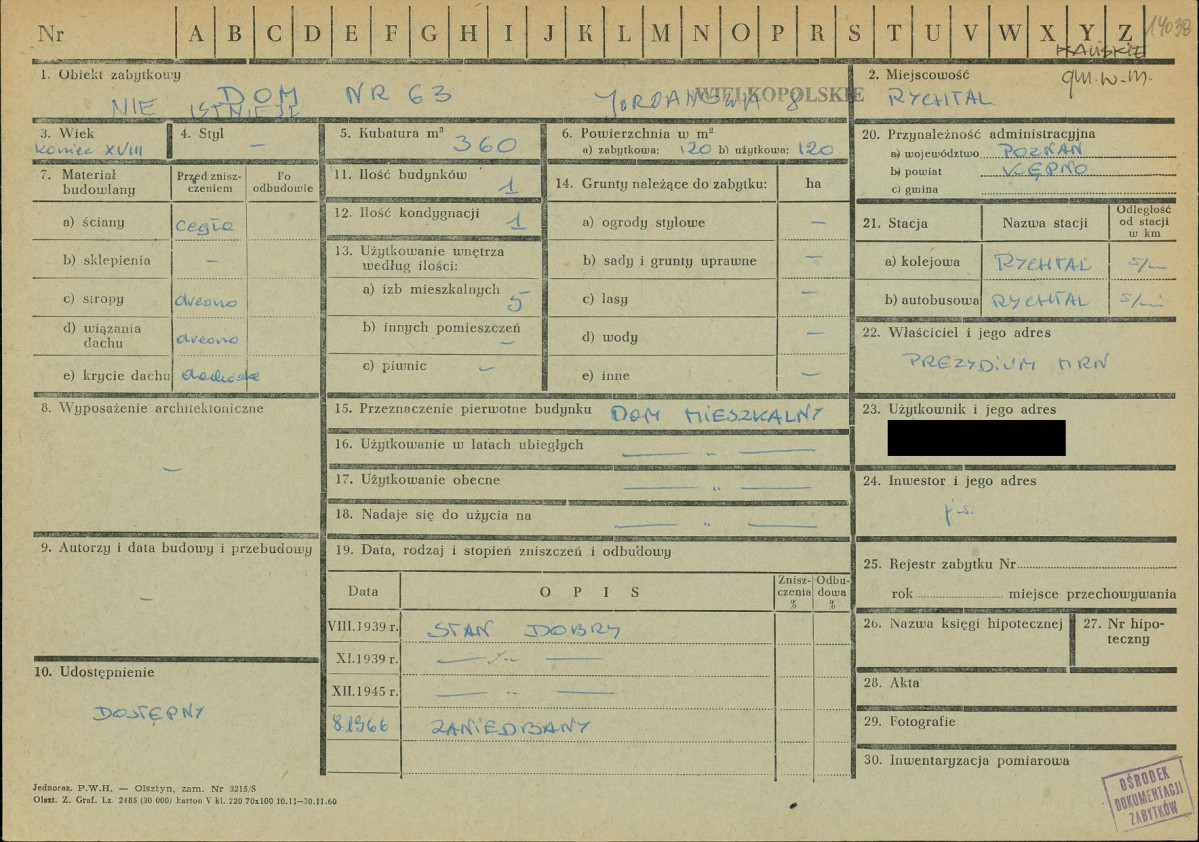 Nr A B C D E F G H I J K L M N O P R S T U V W X Y Z 14038
KALISKIE
gm.w-m.
1. Obiekt zabytkowy
DOM NR 63
WIELKOPOLSKIE
NIE ISTNIEJE
2. Miejscowość
RYCHTAL
3. Wiek
koniec XVIII
4. Styl
—
5. Kubatura m³
360
6. Powierzchnia w m²
a) zabytkowa: 120 b) użytkowa: 120
7. Materiał budowlany
Przed zniszczeniem
Po odbudowie
a) ściany cegła
b) sklepienia —
c) stropy drewno
d) wiązania dachu drewno
e) krycie dachu dachówka
8. Wyposażenie architektoniczne
—
9. Autorzy i data budowy i przebudowy
—
10. Udostępnienie
DOSTĘPNY
11. Ilość budynków 1
12. Ilość kondygnacji 1
13. Użytkowanie wnętrza według ilości:
a) izb mieszkalnych 5
b) innych pomieszczeń —
c) piwnic —
14. Grunty należące do zabytku: ha
a) ogrody stylowe —
b) sady i grunty uprawne —
c) lasy —
d) wody —
e) inne —
15. Przeznaczenie pierwotne budynku DOM MIESZKALNY
16. Użytkowanie w latach ubiegłych — „ —
17. Użytkowanie obecne — „ —
18. Nadaje się do użycia na — „ —
19. Data, rodzaj i stopień zniszczeń i odbudowy
Data OPIS Zniszczenia % Odbudowa %
VIII.1939 r. STAN DOBRY
XI.1939 r. — „ —
XII.1945 r. — „ —
8.1966 ZANIEDBANY
20. Przynależność administracyjna
a) województwo POZNAŃ
b) powiat KĘPNO
c) gmina
21. Stacja
Nazwa stacji
Odległość od stacji w km
a) kolejowa RYCHTAL
b) autobusowa RYCHTAL
22. Właściciel i jego adres
PREZYDIUM MRN
23. Użytkownik i jego adres
24. Inwestor i jego adres
25. Rejestr zabytku Nr
rok miejsce przechowywania
26. Nazwa księgi hipotecznej
27. Nr hipoteczny
28. Akta
29. Fotografie
30. Inwentaryzacja pomiarowa
Jednoraz. P.W.H. — Olsztyn, zam. Nr 3215/S
Olszt. Z. Graf. Lz. 2485 (30 000) karton V kl. 220 70x100 10.11—30.11.60
OŚRODEK
DOKUMENTACJI
ZABYTKÓW